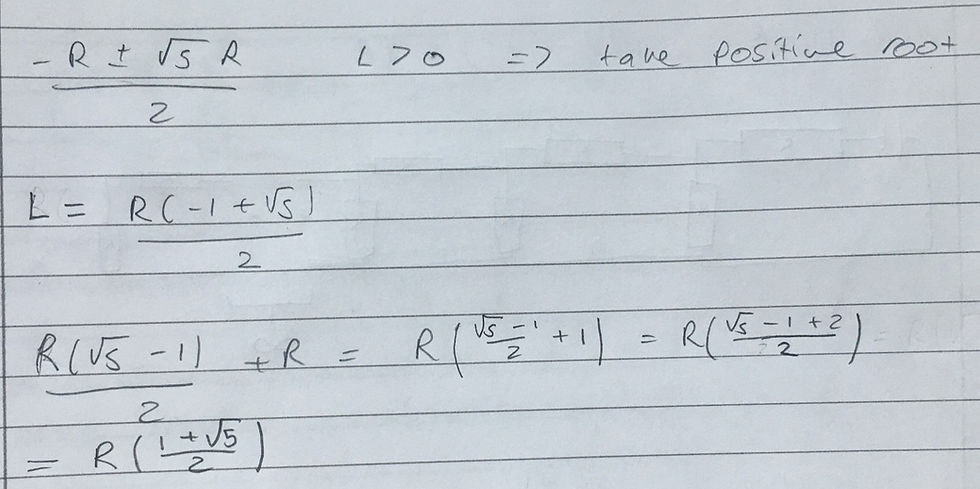 (-R ± √5 R)/2    L > 0 => take positive root
L = R(-1 + √5)/2
R(√5 - 1)/2 + R = R((√5 - 1)/2 + 1) = R((√5 - 1 + 2)/2)
= R((1 + √5)/2)